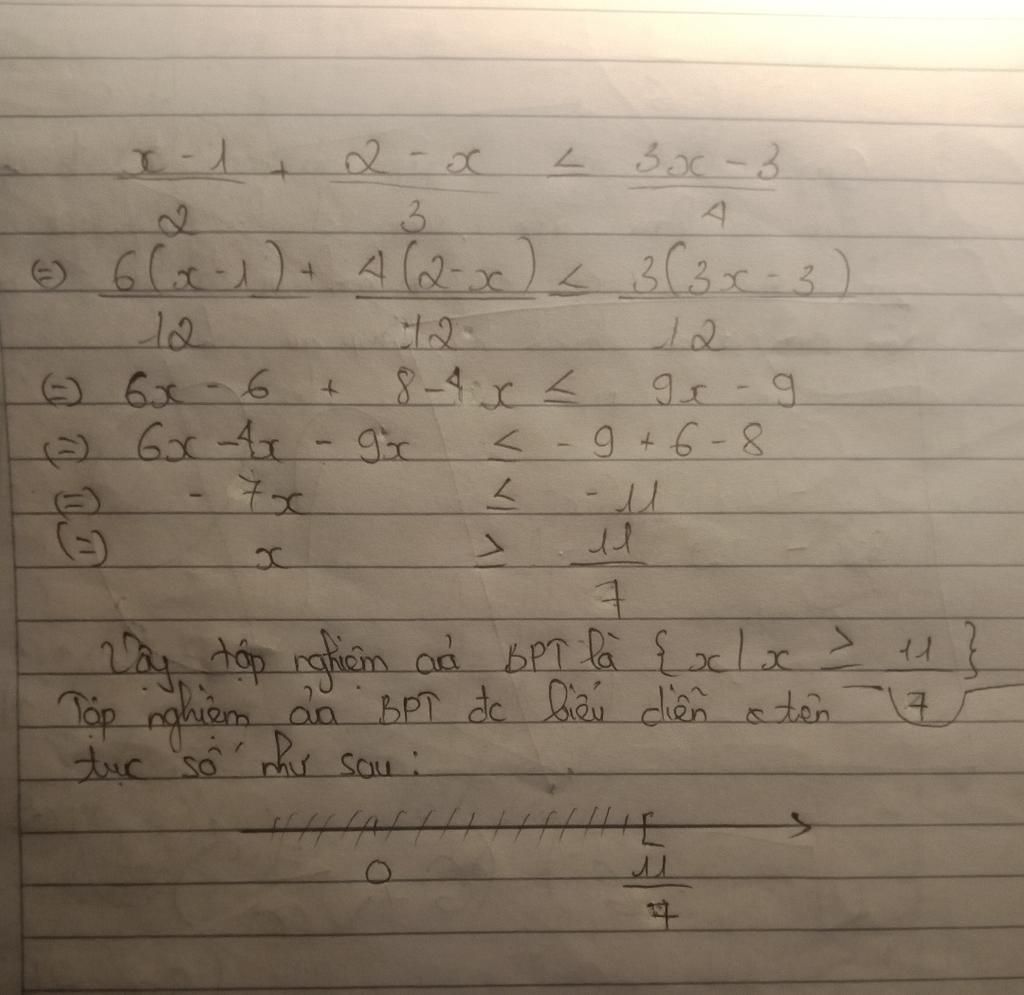 x - 1 / 2 + 2 - x / 3 ≤ 3x - 3 / 4
(=) 6(x-1) / 12 + 4(2-x) / 12 ≤ 3(3x - 3) / 12
(=) 6x - 6 + 8-4x ≤ 9x - 9
(=) 6x -4x - 9x ≤ - 9 + 6 - 8
(=) - 7x ≤ -11
(=) x ≥ 11 / 7
Vậy tập nghiệm của BPT là {x | x ≥ 11 / 7}
Tập nghiệm của BPT đc biểu diễn trên
trục số như sau:
0 [ 11 / 7